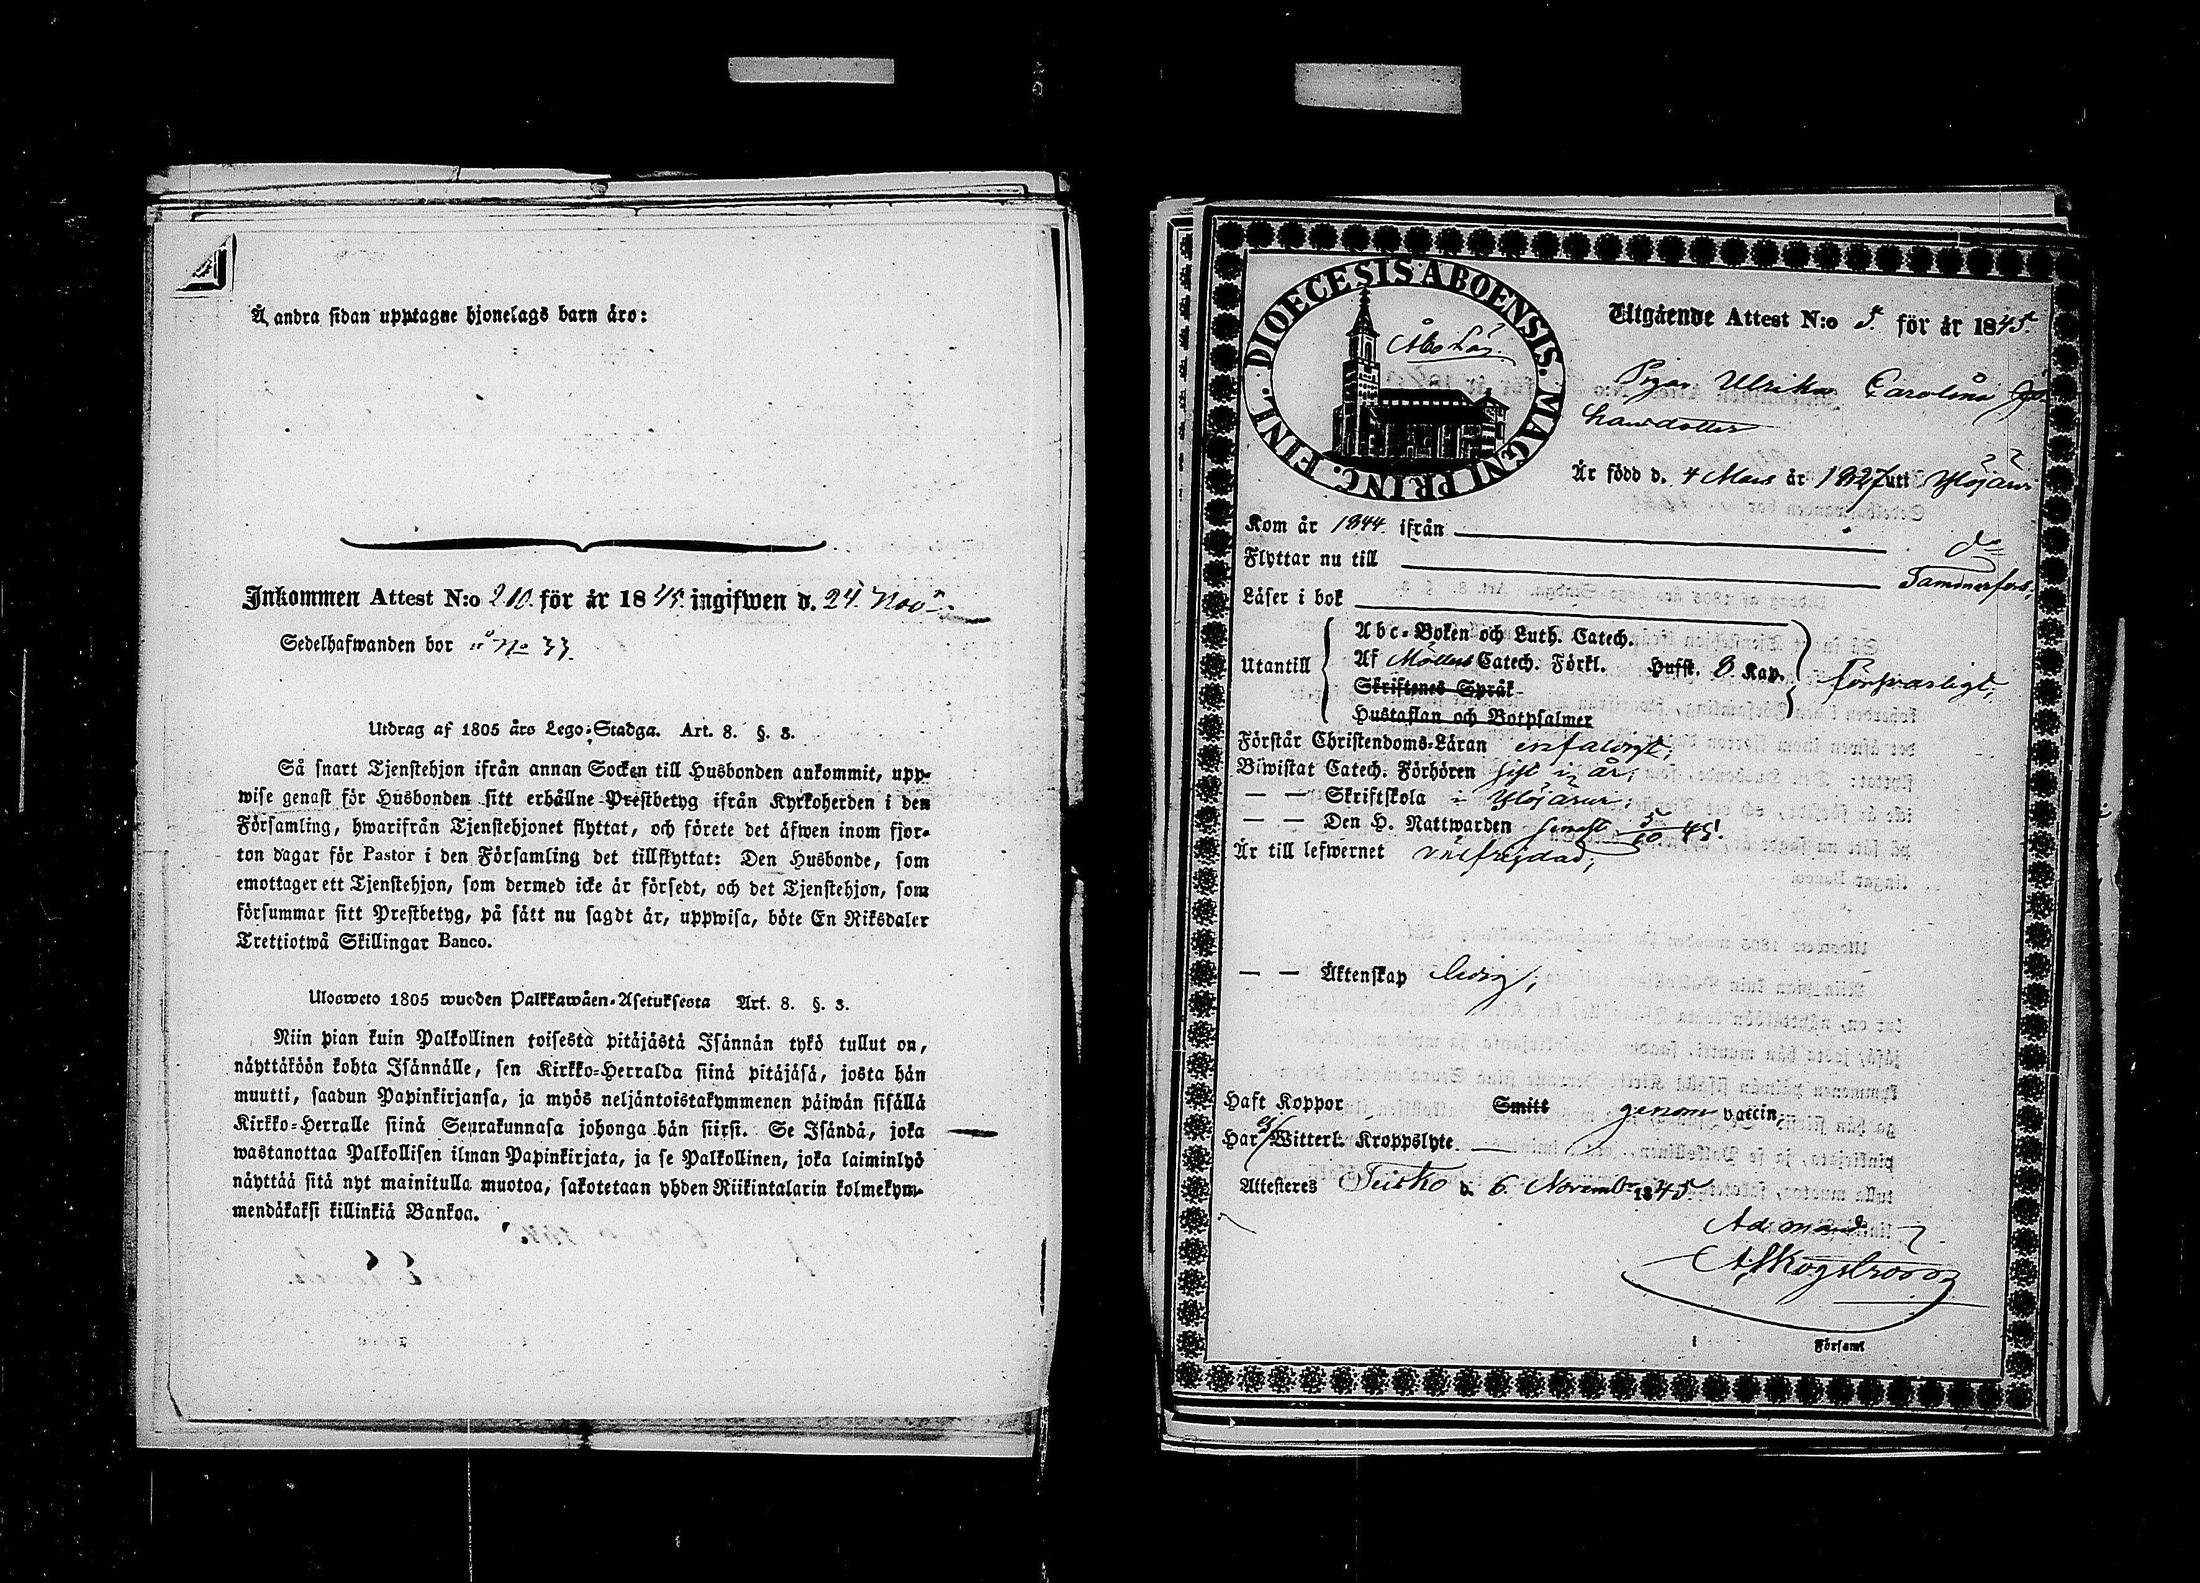 Å andra sidan upptagne hjonelags barn äro:
Inkommen Attest N:o 210. för år 1845. ingifwen d. 24. Nov.
Sedelhafwanden bor å No 33.
Utdrag af 1805 års Lego-Stadga. Art. 8. §. 3.
Så snart Tjenstehjon ifrån annan Socken till Husbonden ankommit, upp-
wise genast för Husbonden sitt erhållne Prestbetyg ifrån Kyrkoherden i den
Församling, hwarifrån Tjenstehjonet flyttat, och förete det äfwen inom fjor-
ton dagar för Pastor i den Församling det tillflyttat: Den Husbonde, som
emottager ett Tjenstehjon, som dermed icke är försedt, och det Tjenstehjon, som
försummar sitt Prestbetyg, på sätt nu sagdt är, uppwisa, böte En Riksdaler
Trettiotwå Skillingar Banco.
Ulosweto 1805 wuoden Palkkawäen-Asetuksesta Art. 8. §. 3.
Niin pian kuin Palkollinen toisesta pitäjästä Isännän tykö tullut on,
näyttäköön kohta Isännälle, sen Kirkko-Herralda siinä pitäjäsä, josta hän
muutti, saadun Papinkirjansa, ja myös neljäntoistakymmenen päiwän sisällä
Kirkko-Herralle siinä Seurakunnasa johonga hän siirsi. Se Isändä, joka
wastanottaa Palkollisen ilman Papinkirjata, ja se Palkollinen, joka laiminlyö
näyttää sitä nyt mainitulla muotoa, sakotetaan yhden Riikintalarin kolmekym-
mendäkaksi killinkiä Bankoa.
DIOECESIS ABOENSIS. MAGNI PRINC. FINL.
Åbo Län.
Utgående Attest N:o 5. för år 1845.
Pigan Ulrika Carolina Jo-
hansdotter
Är född d. 4 Mars år 1827 uti Ylöjärvi
Kom år 1844 ifrån do
Flyttar nu till Tammerfors,
Läser i bok
Abc-Boken och Luth. Catech.
Utantill Af Möllers Catech. Förkl. Hufst. 8. Kap. försvarligt,
Skriftenes Språk
Hustaflan och Botpsalmer
Förstår Christendoms-Läran enfaldigt,
Biwistat Catech. Förhören sist i år,
— — Skriftskola i Ylöjärvi,
— — Den H. Nattwarden senast 5/10 45.
Är till lefwernet välfrejdad,
— — Äktenskap ledig,
Haft Koppor Smitt genom vaccin,
Har Witterl. Kroppslyte. —
Attesteres Teisko d. 6. Novemb. 1845
Ad mand.
A Skogstroom
i Församl